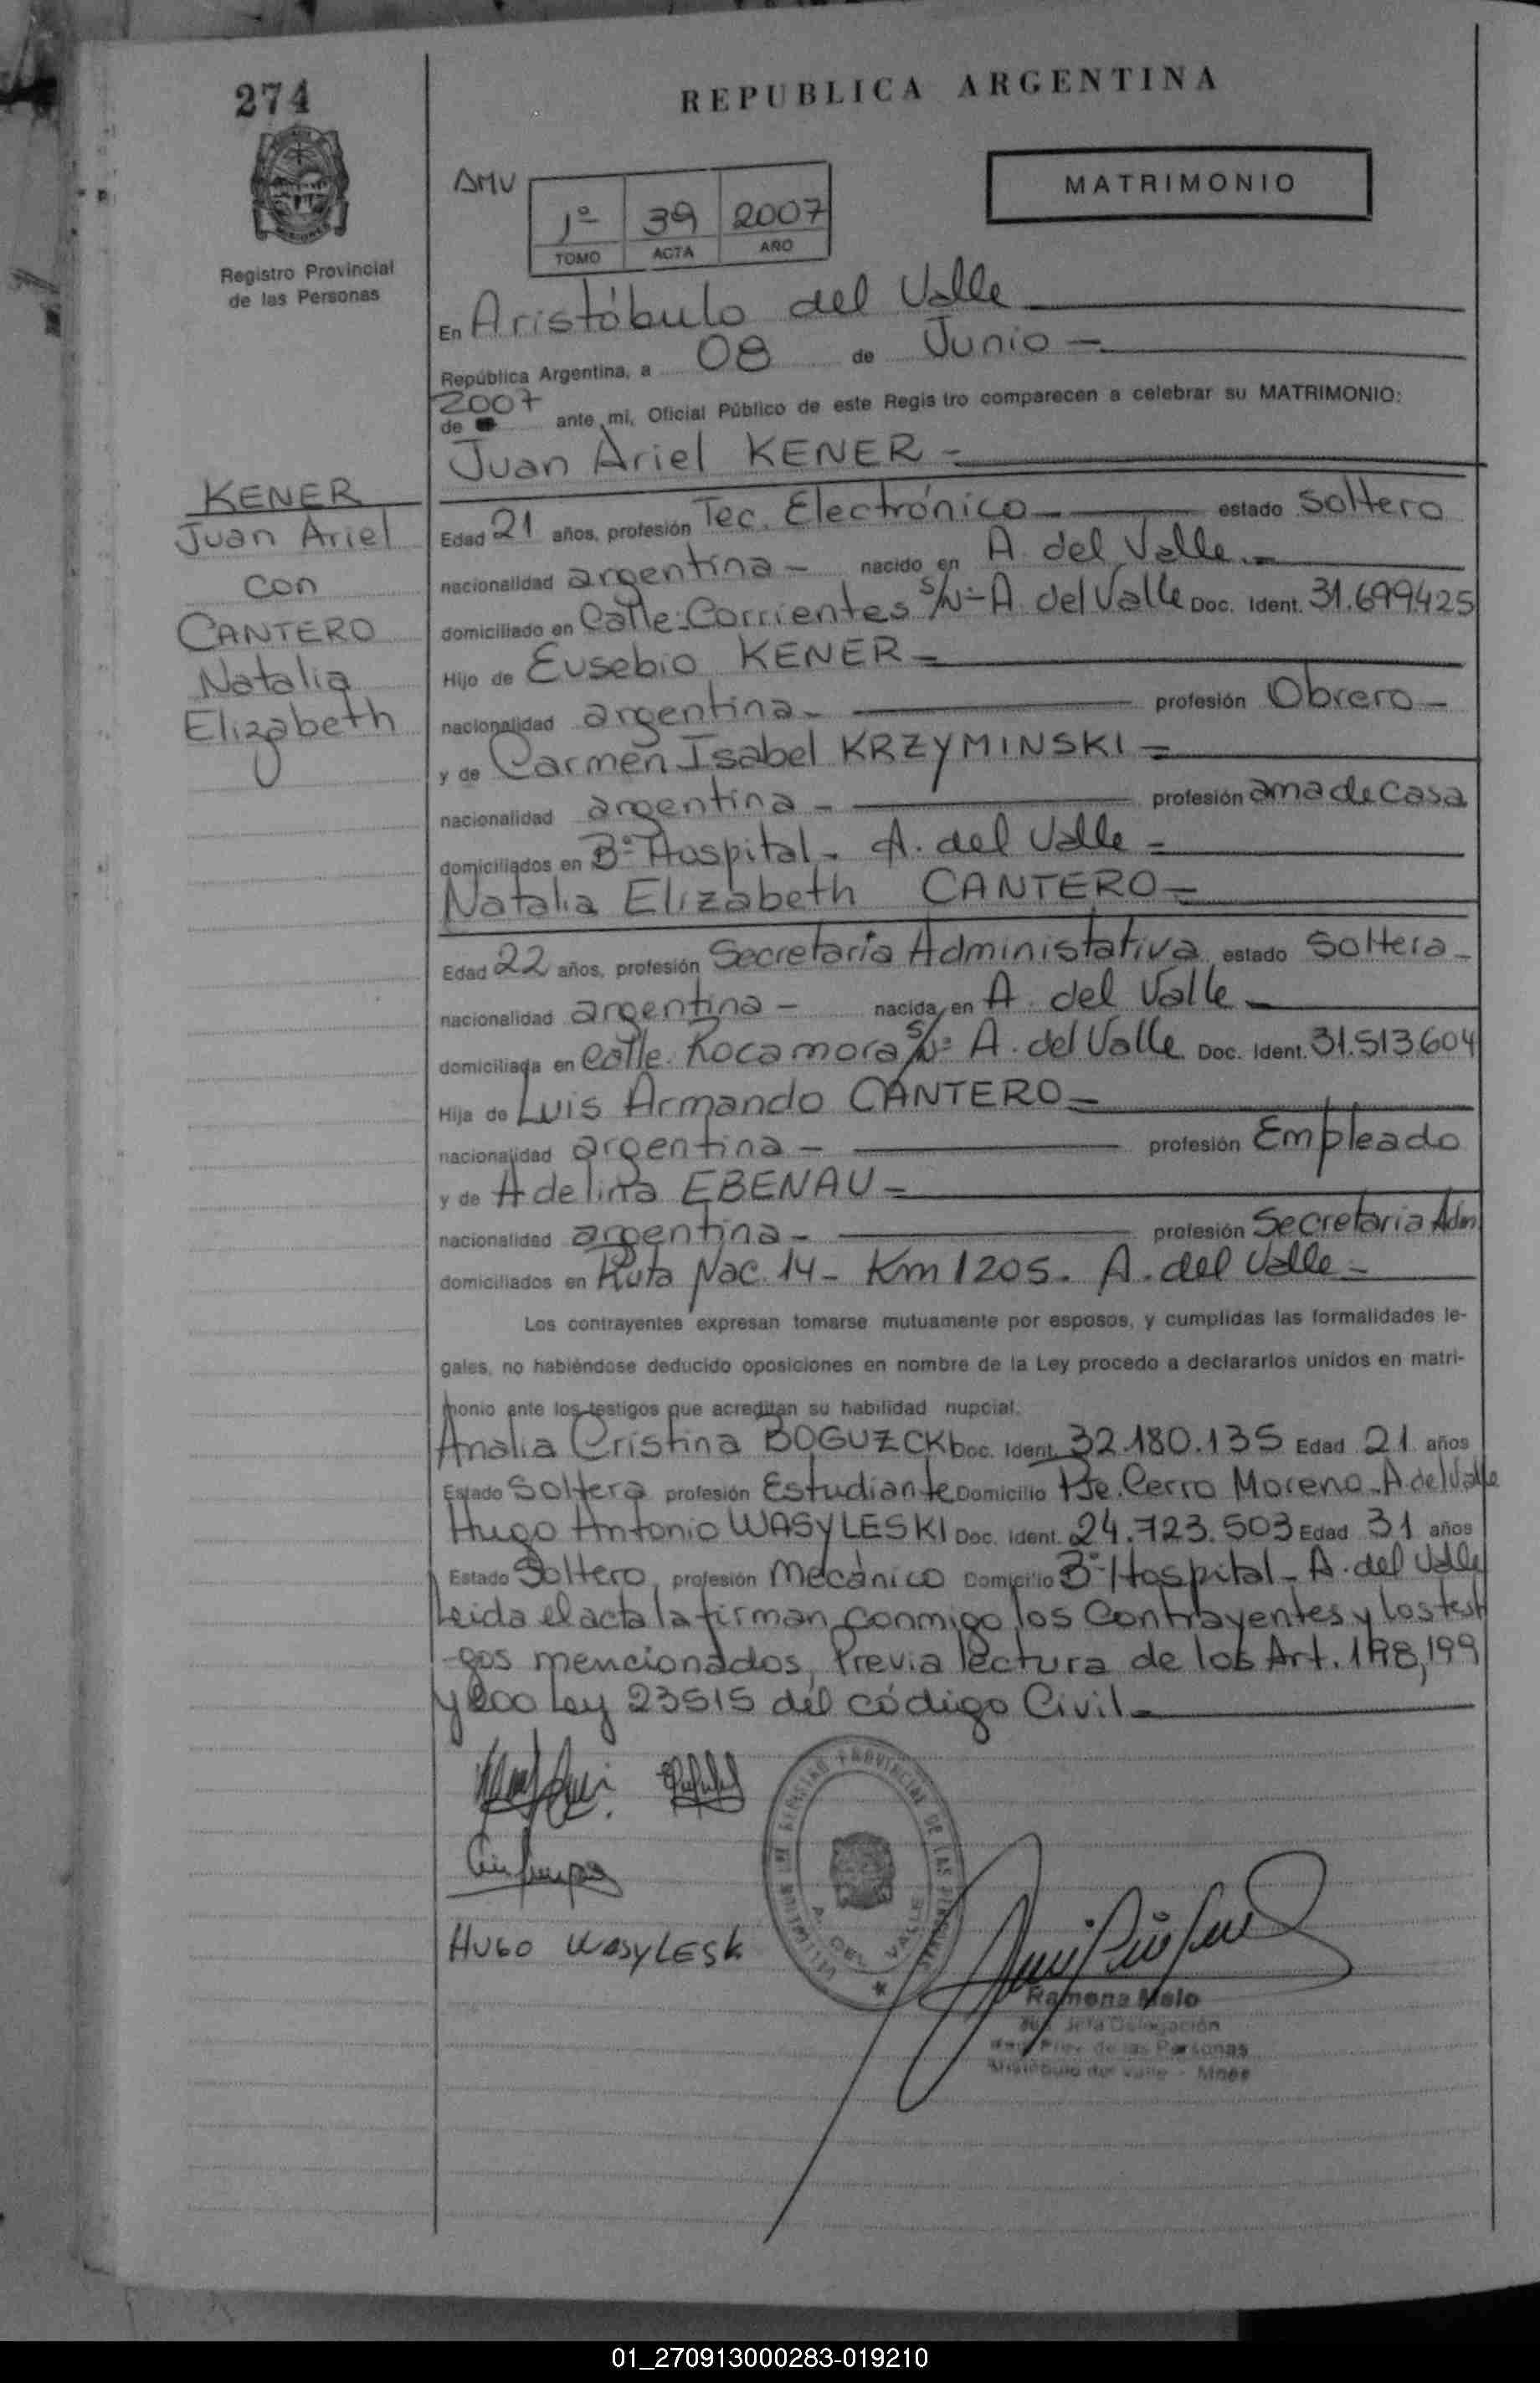 274
REPUBLICA ARGENTINA
AMV
1º 39 2007
TOMO ACTA AÑO
MATRIMONIO
MISIONES
Registro Provincial
de las Personas
En Aristóbulo del Valle
República Argentina, a 08 de Junio
2007
de ante mi, Oficial Público de este Regis tro comparecen a celebrar su MATRIMONIO:
Juan Ariel KENER
KENER
Juan Ariel
con
CANTERO
Natalia
Elizabeth
Edad 21 años, profesión Tec. Electrónico estado Soltero
nacionalidad argentina nacido en A. del Valle
domiciliado en Calle Corrientes S/Nº A. del Valle Doc. Ident. 31.699425
Hijo de Eusebio KENER
nacionalidad argentina profesión Obrero
y de Carmen Isabel KRZYMINSKI
nacionalidad argentina profesión ama de casa
domiciliados en Bº Hospital - A. del Valle
Natalia Elizabeth CANTERO
Edad 22 años, profesión Secretaria Administativa estado Soltera
nacionalidad argentina nacida en A. del Valle
domiciliada en Calle Rocamora S/Nº A. del Valle Doc. Ident. 31.513604
Hija de Luis Armando CANTERO
nacionalidad argentina profesión Empleado
y de Adelina EBENAU
nacionalidad argentina profesión Secretaria Adm
domiciliados en Ruta Nac. 14 - Km 1205. A. del Valle
Los contrayentes expresan tomarse mutuamente por esposos, y cumplidas las formalidades le-
gales, no habiéndose deducido oposiciones en nombre de la Ley procedo a declararlos unidos en matri-
monio ante los testigos que acreditan su habilidad nupcial.
Analia Cristina BOGUZCKI Doc. Ident. 32.180.135 Edad 21 años
Estado Soltera profesión Estudiante Domicilio Pje. Cerro Moreno - A del Valle
Hugo Antonio WASYLESKI Doc. Ident. 24.723.503 Edad 31 años
Estado Soltero, profesión Mecánico Domicilio Bº Hospital - A. del Valle
Leida el acta la firman conmigo los Contrayentes y los testi
-gos mencionados, Previa lectura de los Art. 198, 199
y 200 Ley 23515 del código Civil
REGISTRO PROVINCIAL DE LAS PERSONAS
A. DEL VALLE
HUGO WASYLESK
Ramona Melo
Jefa Delegación
Reg. Prov. de las Personas
Aristóbulo del Valle - Mnes
01_270913000283-019210